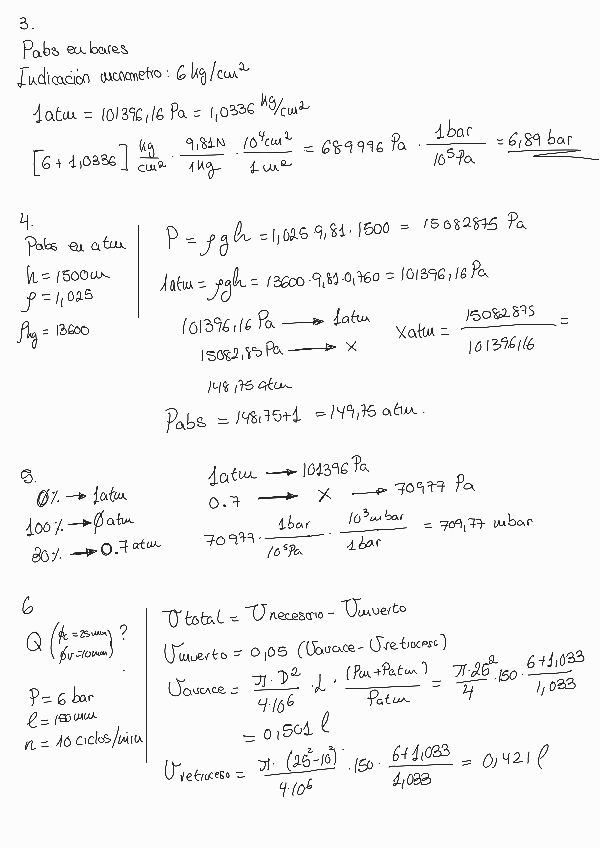 3.
Pabs en bares
Indicación manometro: 6 kg/cm²
1atm = 101396,16 Pa = 1,0336 kg/cm²
[6 + 1,0336] kg/cm² · 9,81N/1kg · 10⁴cm²/1cm² = 689996 Pa · 1bar/10⁵Pa = 6,89 bar
4.
Pabs en atm
h = 1500m
ρ = 1,025
ρHg = 13600
P = ρgh = 1,025·9,81·1500 = 15082875 Pa
1atm = ρgh = 13600·9,81·0,760 = 101396,16 Pa
101396,16 Pa → 1atm
15082,85 Pa → x
x atm = 15082875/101396,16 =
148,75 atm
Pabs = 148,75+1 = 149,75 atm.
5.
0% → 1atm
100% → 0 atm
30% → 0.7 atm
1atm → 101396 Pa
0.7 → x → 70977 Pa
70977 · 1bar/10⁵Pa · 10³mbar/1bar = 709,77 mbar
6
Q (ϕe = 25mm ϕv = 10mm) ?
P = 6 bar
l = 150 mm
n = 10 ciclos/min
Vtotal = Vnecesario - Vmuerto
Vmuerto = 0,05 (Vavance - Vretroceso)
Vavance = π·D²/4·10⁶ · L · (Pm+Patm)/Patm = π·25²/4 · 150 · 6+1,033/1,033
= 0,501 l
Vretroceso = π·(25²-10²)/4·10⁶ · 150 · 6+1,033/1,033 = 0,421 l